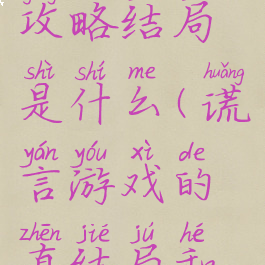 攻略结局
shì shí me huǎng
是什么(谎
yán yóu xì de
言游戏的
zhēn jié jú hé
真结局和